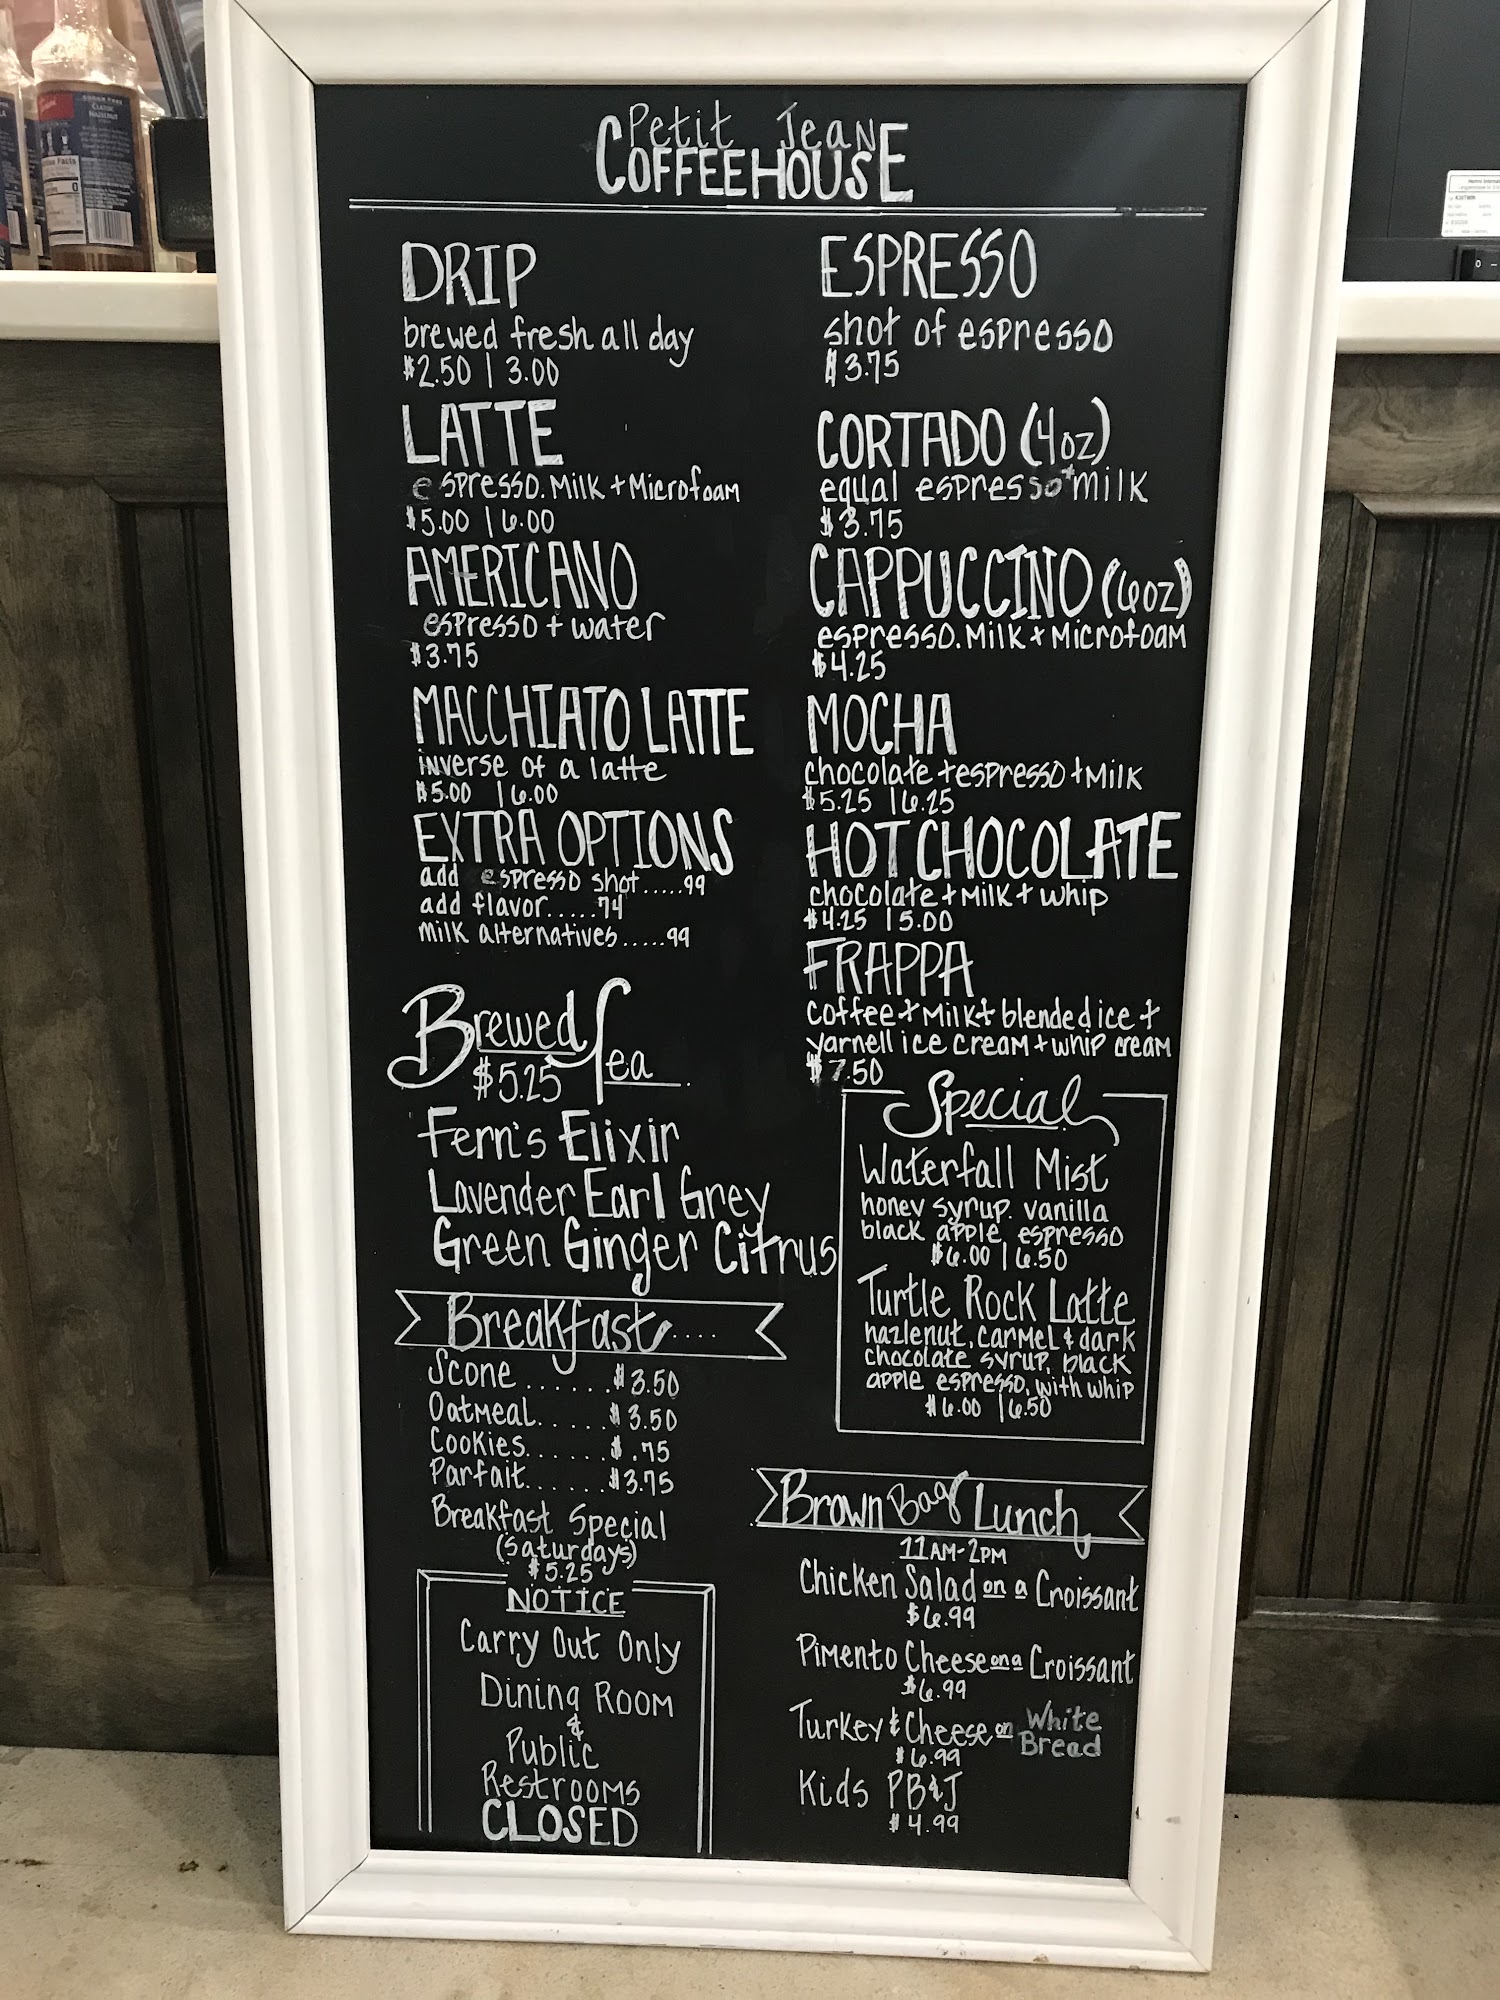 Petit Jean
COFFEEHOUSE
DRIP
brewed fresh all day
$2.50 | 3.00
LATTE
espresso. Milk + Microfoam
$5.00 | 6.00
AMERICANO
espresso + water
$3.75
MACCHIATO LATTE
inverse of a latte
$5.00 | 6.00
EXTRA OPTIONS
add espresso shot.....99
add flavor.....74
milk alternatives.....99
Brewed Tea
$5.25
Fern's Elixir
Lavender Earl Grey
Green Ginger Citrus
Breakfast....
Scone.......$3.50
Oatmeal.....$3.50
Cookies......$.75
Parfait.......$3.75
Breakfast Special
(Saturdays)
$5.25
NOTICE
Carry Out Only
Dining Room
&
Public
Restrooms
CLOSED
ESPRESSO
shot of espresso
$3.75
CORTADO (4oz)
equal espresso + milk
$3.75
CAPPUCCINO (6oz)
espresso. Milk + Microfoam
$4.25
MOCHA
chocolate + espresso + Milk
$5.25 | 6.25
HOT CHOCOLATE
chocolate + Milk + whip
$4.25 | 5.00
FRAPPA
coffee + Milk + blended ice +
yarnell ice cream + whip cream
$7.50
Special
Waterfall Mist
honey syrup. vanilla
black apple espresso
$6.00 | 6.50
Turtle Rock Latte
hazlenut, carmel & dark
chocolate syrup, black
apple espresso, with whip
$6.00 | 6.50
Brown Bag Lunch
11AM-2PM
Chicken Salad on a Croissant
$6.99
Pimento Cheese on a Croissant
$6.99
Turkey & Cheese on White Bread
$6.99
Kids PB&J
$4.99
CLASSIC
HAZELNUT